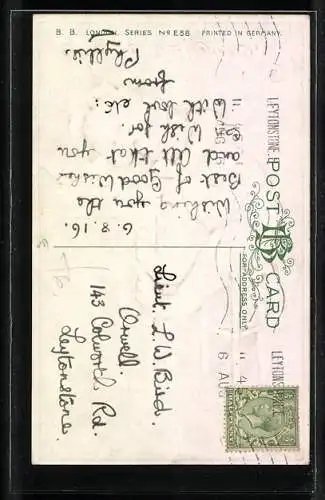 B. B. LONDON. SERIES No E58 PRINTED IN GERMANY.
POST CARD
FOR ADDRESS ONLY.
LEYTONSTONE
11.4
6 AUG
LEYTONSTONE
6.8.16.
Wishing you the
Best of Good Wishes
and All that you
Wish for.
With love etc:
from
Phyllis.
Lieut. L. W. Bird.
Orwell.
143 Colworth Rd.
Leytonstone.